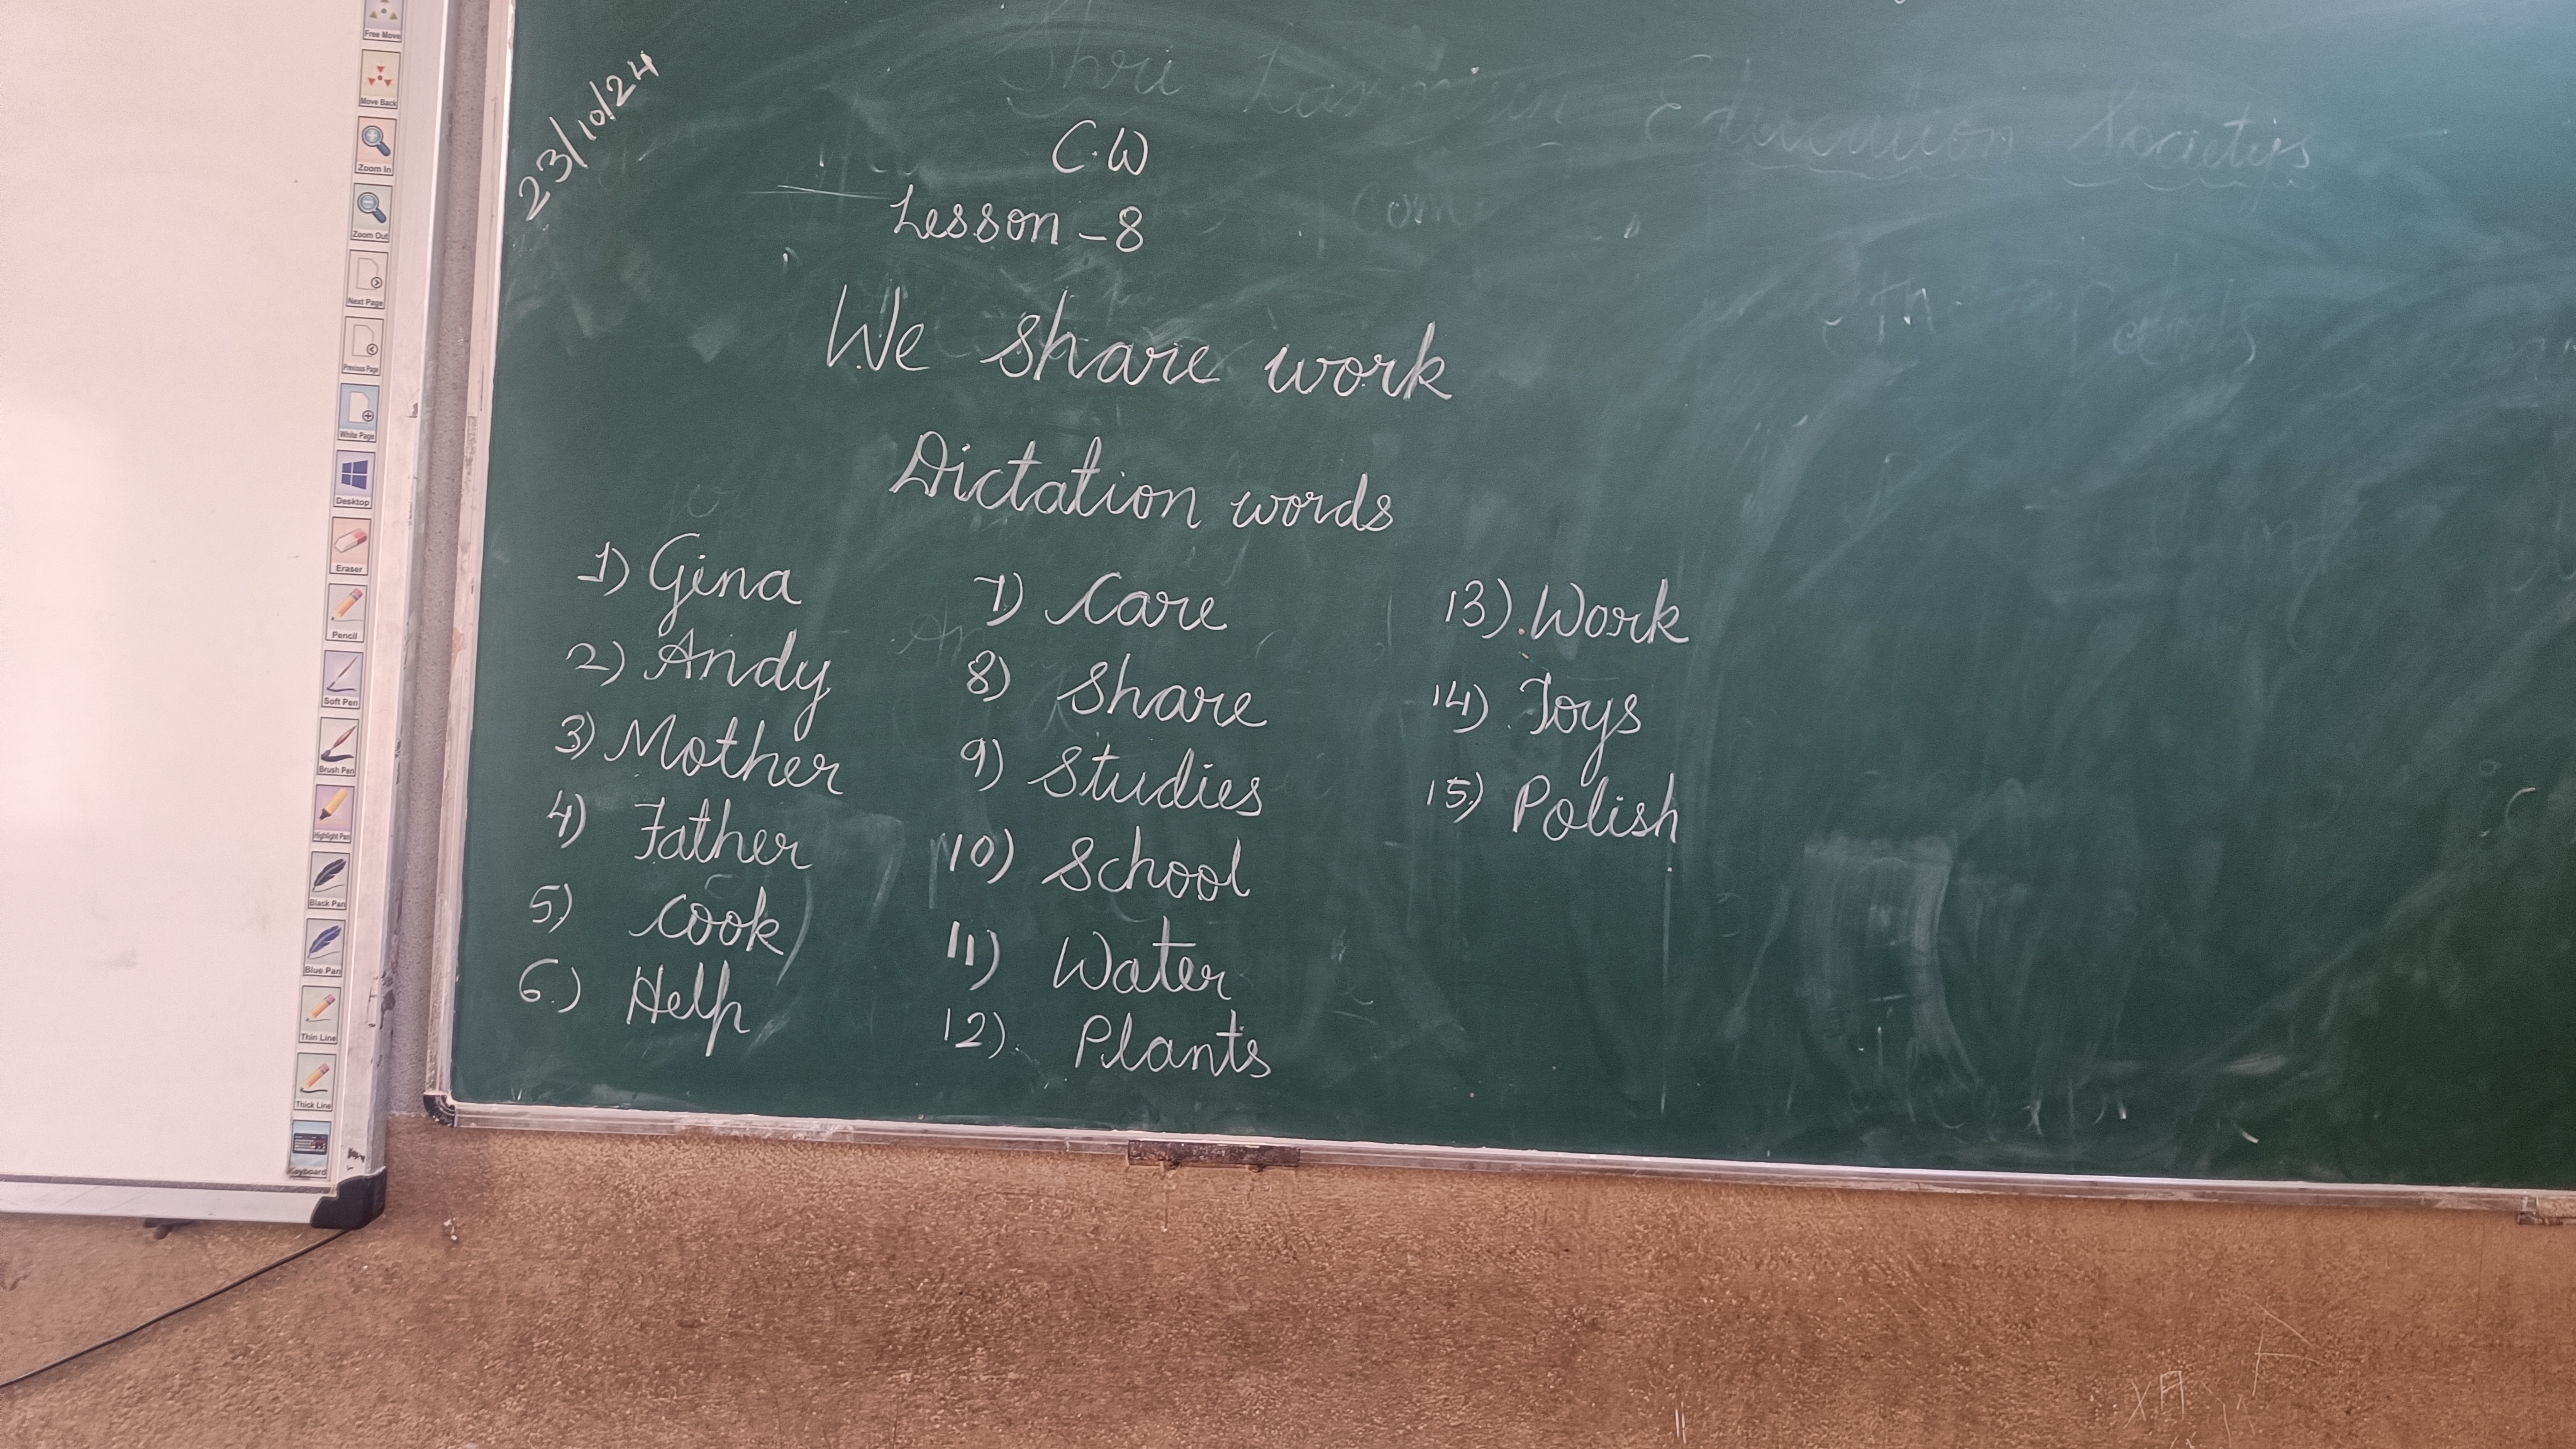 Free Move
Move Back
Zoom In
Zoom Out
Next Page
Previous Page
White Page
Desktop
Eraser
Pencil
Soft Pen
Brush Pen
Highlight Pen
Black Pan
Blue Pan
Thin Line
Thick Line
Keyboard
23/10/24
Shri Education Societys
C.W
Lesson - 8
We share work
Dictation words
1) Gina
2) Andy
3) Mother
4) Father
5) Cook
6.) Help
7) Care
8) Share
9) Studies
10) School
11) Water
12). Plants
13). Work
14) Toys
15.) Polish